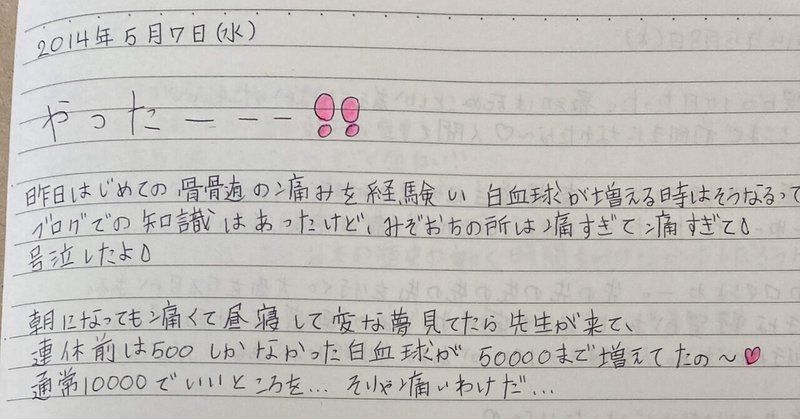 2014年5月7日(水)
やったーーー!!
昨日はじめての骨骨適の痛みを経験い 白血球が増える時はそうなるって
ブログでの知識はあったけど、みぞおちの所は痛すぎて痛すぎて
号泣したよ
朝になっても痛くて昼寝して変な夢見てたら先生が来て、
連休前は500しかなかった白血球が50000まで増えてたの〜♥
通常10000でいいところを… そりゃ痛いわけだ…